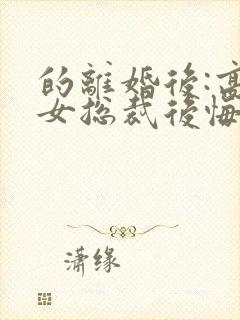 的離婚後:高
女总裁後悔
潇缘